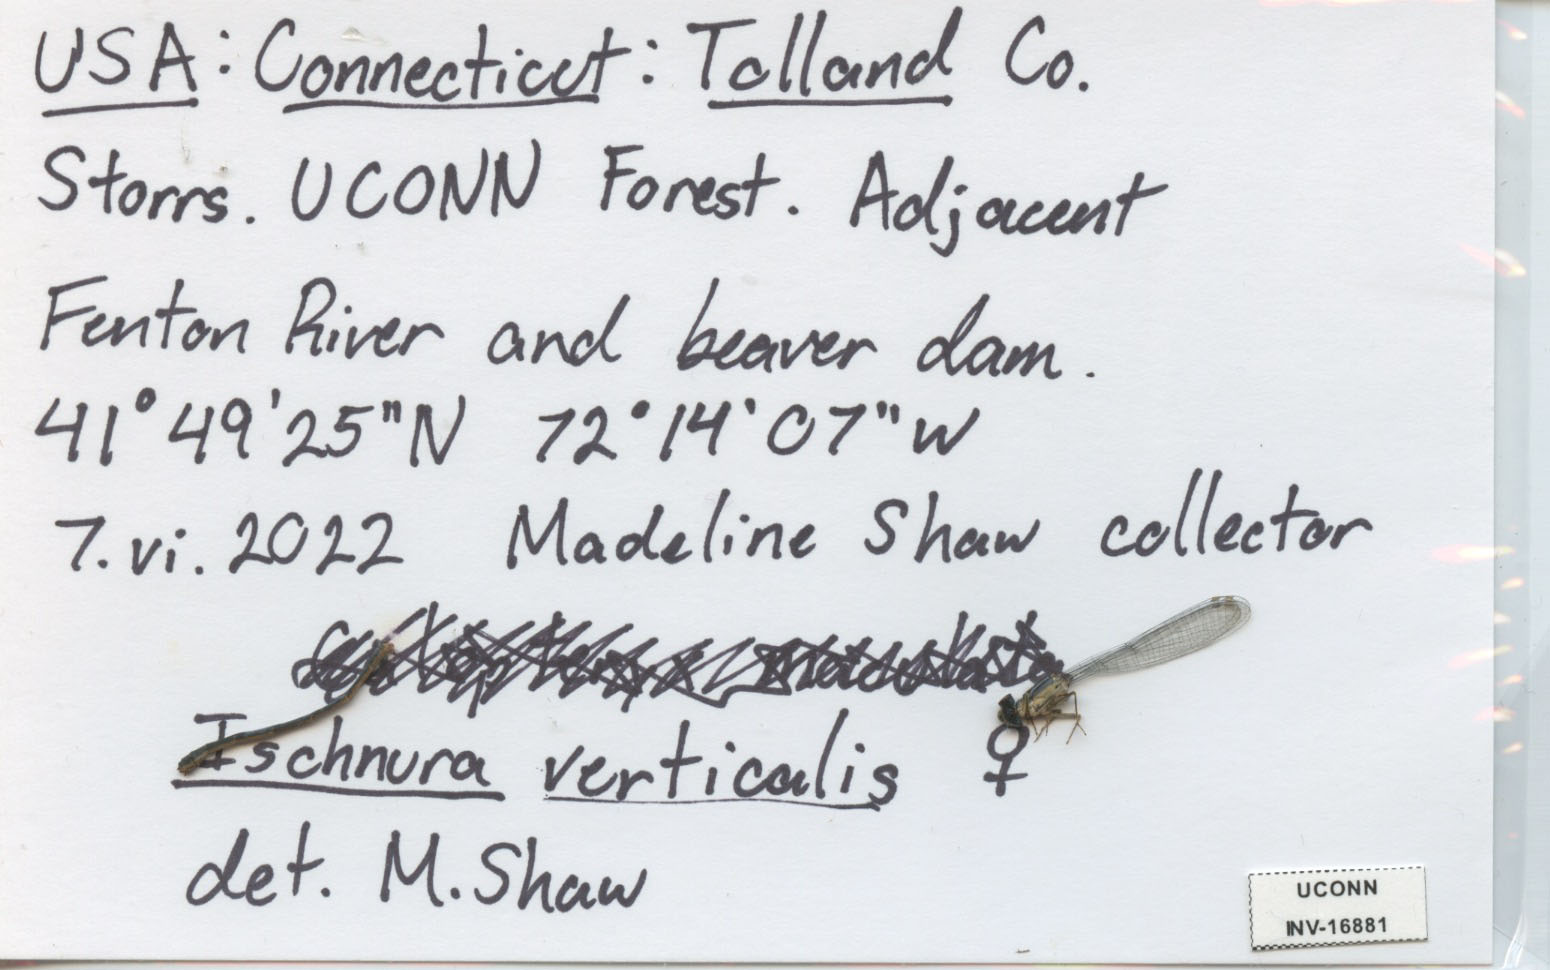 USA: Connecticut: Tolland Co.
Storrs. UCONN Forest. Adjacent
Fenton River and beaver dam.
41°49'25"N 72°14'07"W
7.vi.2022 Madeline Shaw collector
Ischnura verticalis ♀
det. M. Shaw
UCONN
INV-16881